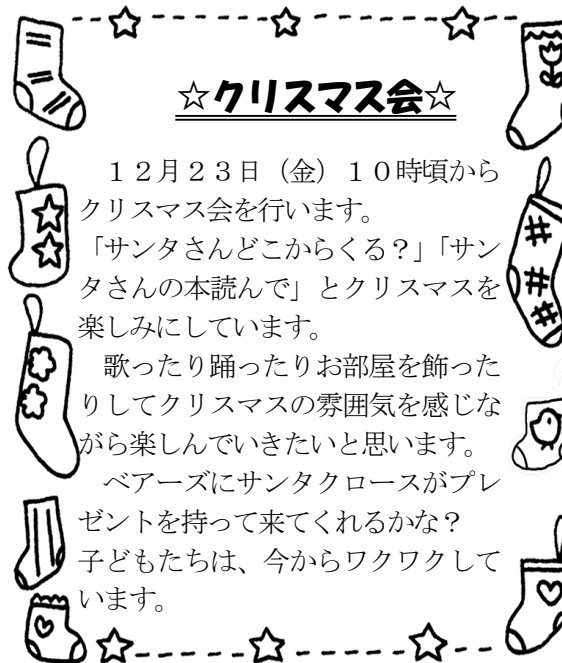 ☆クリスマス会☆
　１２月２３日（金）１０時頃から
クリスマス会を行います。
「サンタさんどこからくる？」「サン
タさんの本読んで」とクリスマスを
楽しみにしています。
　歌ったり踊ったりお部屋を飾った
りしてクリスマスの雰囲気を感じな
がら楽しんでいきたいと思います。
　ベアーズにサンタクロースがプレ
ゼントを持って来てくれるかな？
子どもたちは、今からワクワクして
います。